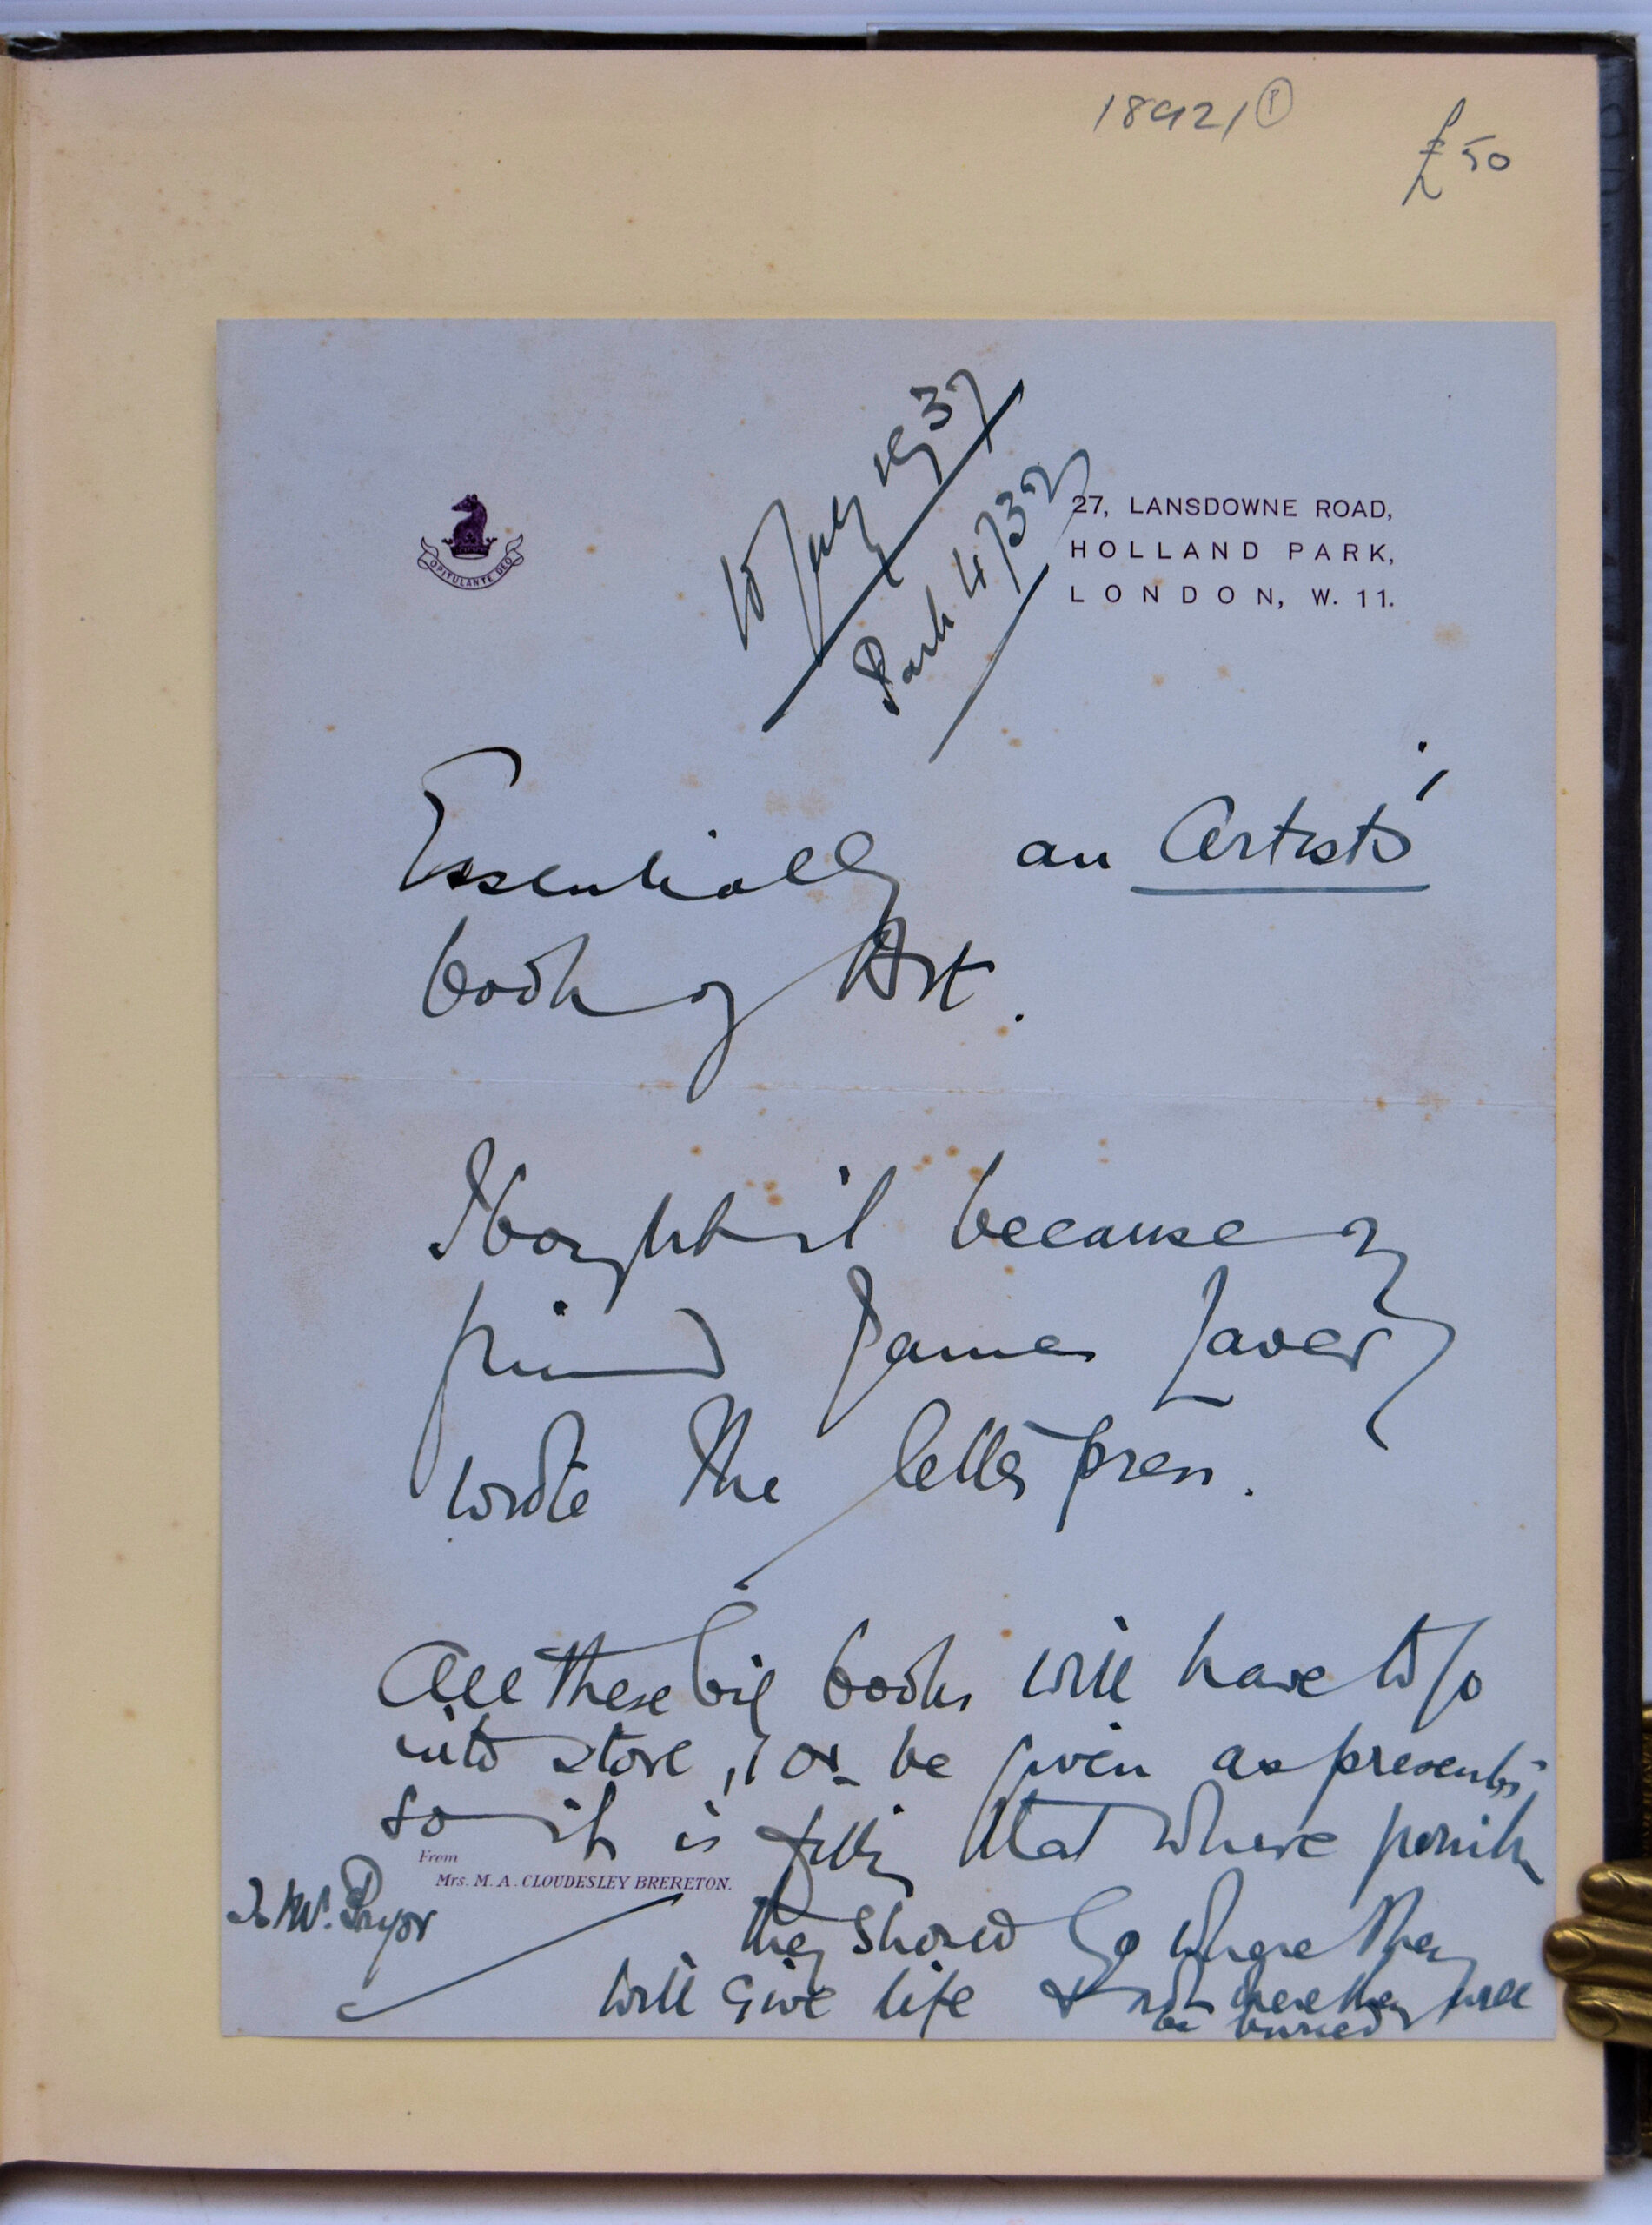 18921
£50
10 July 1937
Park 4732
27, LANSDOWNE ROAD,
HOLLAND PARK,
LONDON, W. 11.
OPITULANTE DEO
Essentially an Artists'
book of Art.
I bought it because of
friend James Laver
wrote the letterpress.
All these big books will have to go
into store, or be given as presents
so it is that where possible
they should go where they
will give life & not where they will
be buried
From
Mrs. M. A. CLOUDESLEY BRERETON.
To Pryor